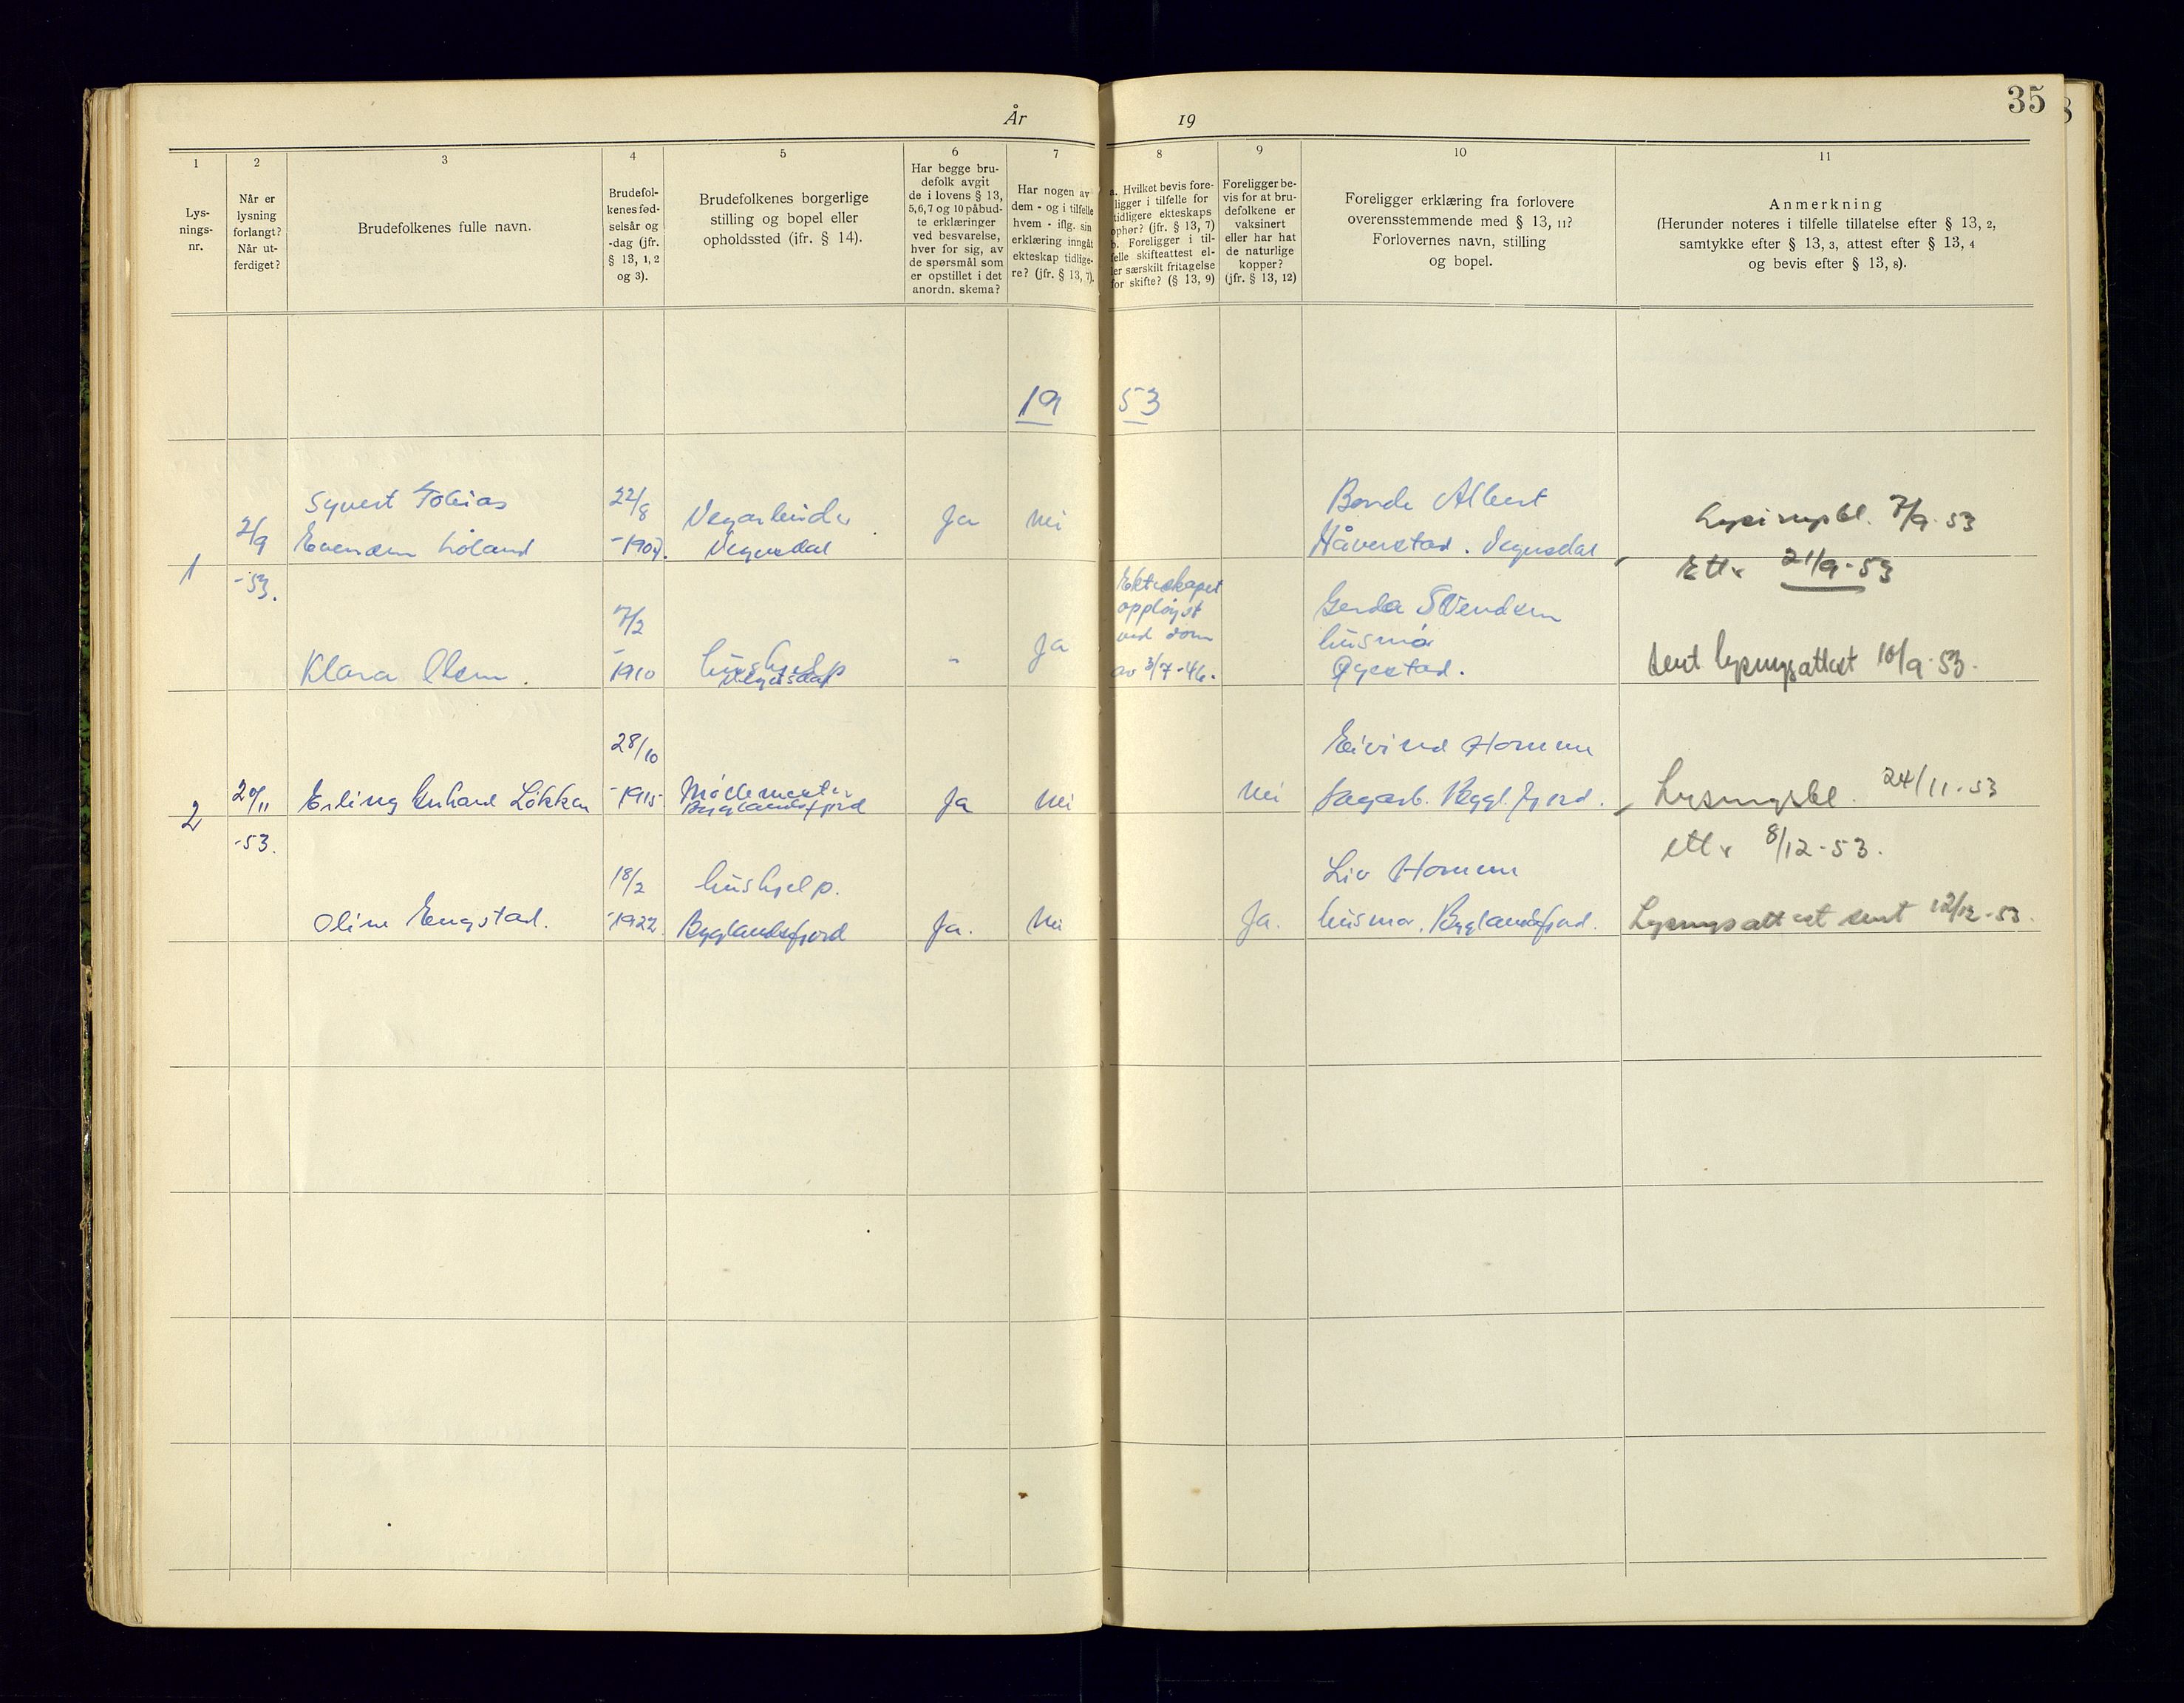 År 19
35
1
Lys-
nings-
nr.
2
Når er
lysning
forlangt?
Når ut-
ferdiget?
3
Brudefolkenes fulle navn.
4
Brudefol-
kenes fød-
selsår og
-dag (jfr.
§ 13, 1, 2
og 3).
5
Brudefolkenes borgerlige
stilling og bopel eller
opholdssted (ifr. § 14).
6
Har begge bru-
defolk avgit
de i lovens § 13,
5,6,7 og 10 påbud-
te erklæringer
ved besvarelse,
hver for sig, av
de spørsmål som
er opstillet i det
anordn. skema?
7
Har nogen av
dem - og i tilfelle
hvem - iflg. sin
erklæring inngåt
ekteskap tidlige-
re? (jfr. § 13, 7).
8
a. Hvilket bevis fore-
ligger i tilfelle for
tidligere ekteskaps
ophør? (jfr. § 13, 7)
b. Foreligger i til-
felle skifteattest el-
ler særskilt fritagelse
for skifte? (§ 13, 9)
9
Foreligger be-
vis for at bru-
defolkene er
vaksinert
eller har hat
de naturlige
kopper?
(jfr. § 13, 12)
10
Foreligger erklæring fra forlovere
overensstemmende med § 13, 11?
Forlovernes navn, stilling
og bopel.
11
Anmerkning
(Herunder noteres i tilfelle tillatelse efter § 13, 2,
samtykke efter § 13, 3, attest efter § 13, 4
og bevis efter § 13, 8).
19 53
1
2/9
-53.
Syvert Tobias
Evensen Loland
22/8
-1907.
Vegarbeider
Vegusdal
Ja
Nei
Bonde Albert
Håverstad. Vegusdal
Lysingsbl. 7/9-53
Ettr 21/9-53
Klara Olsen.
7/2
-1910
hushjelp
Vegusdal
"
Ja
Ekteskapet
oppløyst
ved dom
av 3/7-46.
Gerda Svendsen
husmor
Øyestad.
Sent lysingsattest 10/9-53.
2
20/11
-53.
Erling Løkken
28/10
-1915
Møllemester
Byglandsfjord
Ja
Nei
Nei
Eivind Homme
Sagarb. Bygl.fjord.
Lysingsbl. 24/11-53
ettr 8/12-53.
Oline Engstad.
18/2
-1922
hushjelp.
Byglandsfjord
Ja.
Nei
Ja.
Liv Homme
husmor. Byglandsfjord.
Lysingsattest sent 12/12-53.